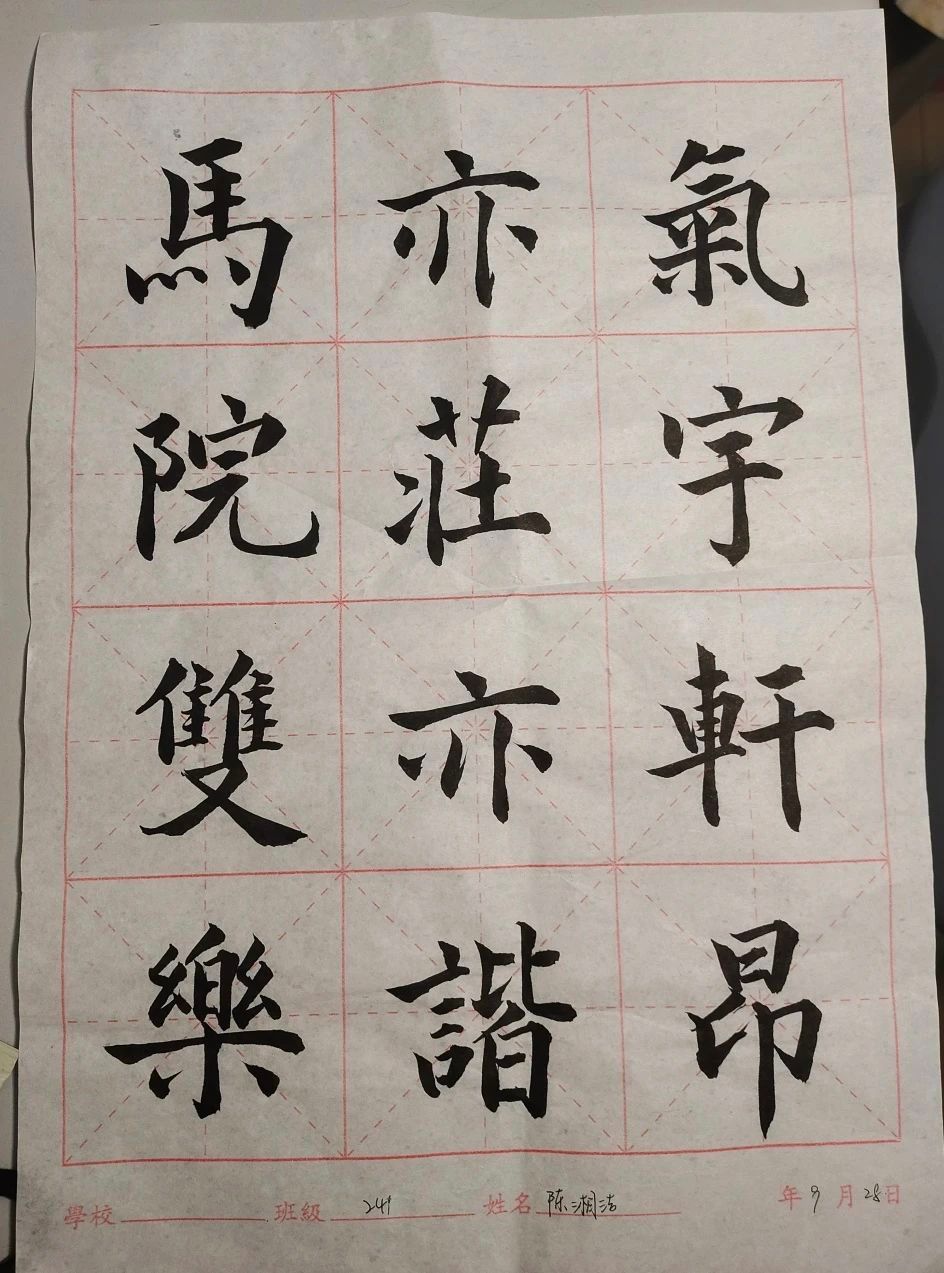 氣宇軒昂
亦莊亦諧
馬院雙樂
學校 班級 241 姓名 陈湘洁 年9月28日